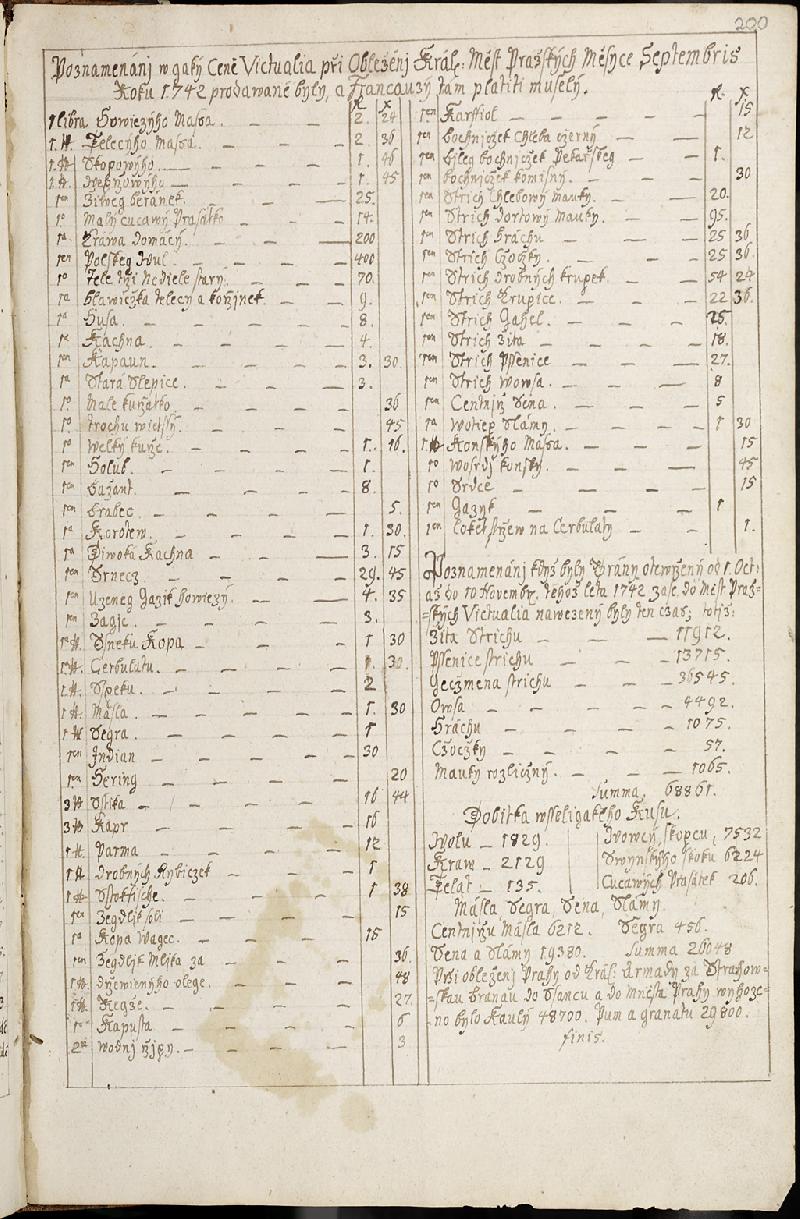 200
Poznamenánj w gaký Ceně Victualia při Obleženj Král: Měst Pražských Měsyce Septembris
Roku 1742 prodawané byly, a Francauzý tam platiti muselý.
fl. x
1 libra Howiezýho Massa. 2. 24
1. tt. Telecýho Massa. 2 36
1. tt Skopowýho 1. 46
1. tt. Wepřowýho 1. 45
1en Žiweg beránek. 25.
1o Malý cucawý Prasátko 14.
1a Kráwa Domácý. 200
1en Polskeg Wul. 400
1o Tele tři Nediele starý. 70
1a hlawiczka telecý a kořjnek. 9.
1a Husa. 8.
1a Kachna 4.
1en Kapaun. 3. 30
1a Stará Slepice. 3.
1o Male kuřátko 36
1o trochu wietssý. 45
1o welký kuře. 1. 16.
1en Holub. 1.
1en bažant. 8.
1en brabec 5.
1a Korotew. 1. 30.
1a Diwoká Kachna 3. 15
1en Srnecz 29. 45
1en Uzeneg Jazik howiezý. 4. 35
1en Zagjc. 3.
Sneku Kopa 1 30
1 tt. Cerbulatu. 1. 30.
1 tt. Sspeku. 2
1 tt. Másla. 1. 30
1 tt. Segra. 1
1en Jndian 30
1en Hering 20
3 tt Sstika 16 44
3 tt Kapr 16
1 tt. Parma 12
1 tt. Drobných Rybiczek 1
1 tt Sstokfische. 1 38
1en Žegdljk soli 15
1a Kopa Wagec. 15
1en Žegdljk Mlika za 36.
1 tt. Drzewienýho olege. 48
1 tt. Regže. 27.
1en Kapusta 6
2 wodnj řjpy. 3
fl. x
1en Karfiol 15
1en bochnjczek Chleba czerný 12
1en bjleg bochnjczek Pekařskeg 1.
1en bochnjczek komisný. 30
1en Strich Chlebowý Mauky. 20.
1en Strich Dortowý Mauky. 95.
1en Strich hráchu 25 36
1en Strich Czoczky. 25 36.
1en Strich drobných krupek. 54 24
1en Strich Krupice. 22 36.
1en Strich Jahel. 26.
1en Strich Žita 18.
1en Strich Pssenice 27.
1en Strich Wowsa. 8
1en Centnýř Sena. 5
1a wotiep Slámy. 1 30
1 tt Konskýho Massa. 15
1o Wosrdj konský. 45
1o Srdce 15
1en Jazyk 1
1en loket střew na Cerbulaty 1.
Poznamenánj když byly Brány otewřený od 1. Oct:
až do 10 Novembr. tehož leta 1742 zase do Měst Praž=
=ských Victualia nawezený byly ten czas; totiž:
Žita Strichu 11912.
Pssenice strichu 13715.
Geczmena strichu 36545.
Owsa 4492.
Hráchu 1075.
Czoczky 57.
Mauky rozlicžný. 1065.
Summa. 68861.
Dobitka wsseligakeho Kusu.
Wolu 1829.
Kraw 2129
Telat 135.
Wowcý, skopcu, 7532
Swynskýho skotu 6224
Cucawých Prasátek 206.
Másla Segra Sena, Slámy.
Centnýřu Másla 6212. Segra 456.
Sena a Slámy 19380. Summa 26048
Přži obleženj Prahy od Král: Armady za Strahow=
=skau branau do Ssancu a do Města Prahy wyhoze=
no bylo Kaulý 48700. Pum a granátu 29800.
finis.